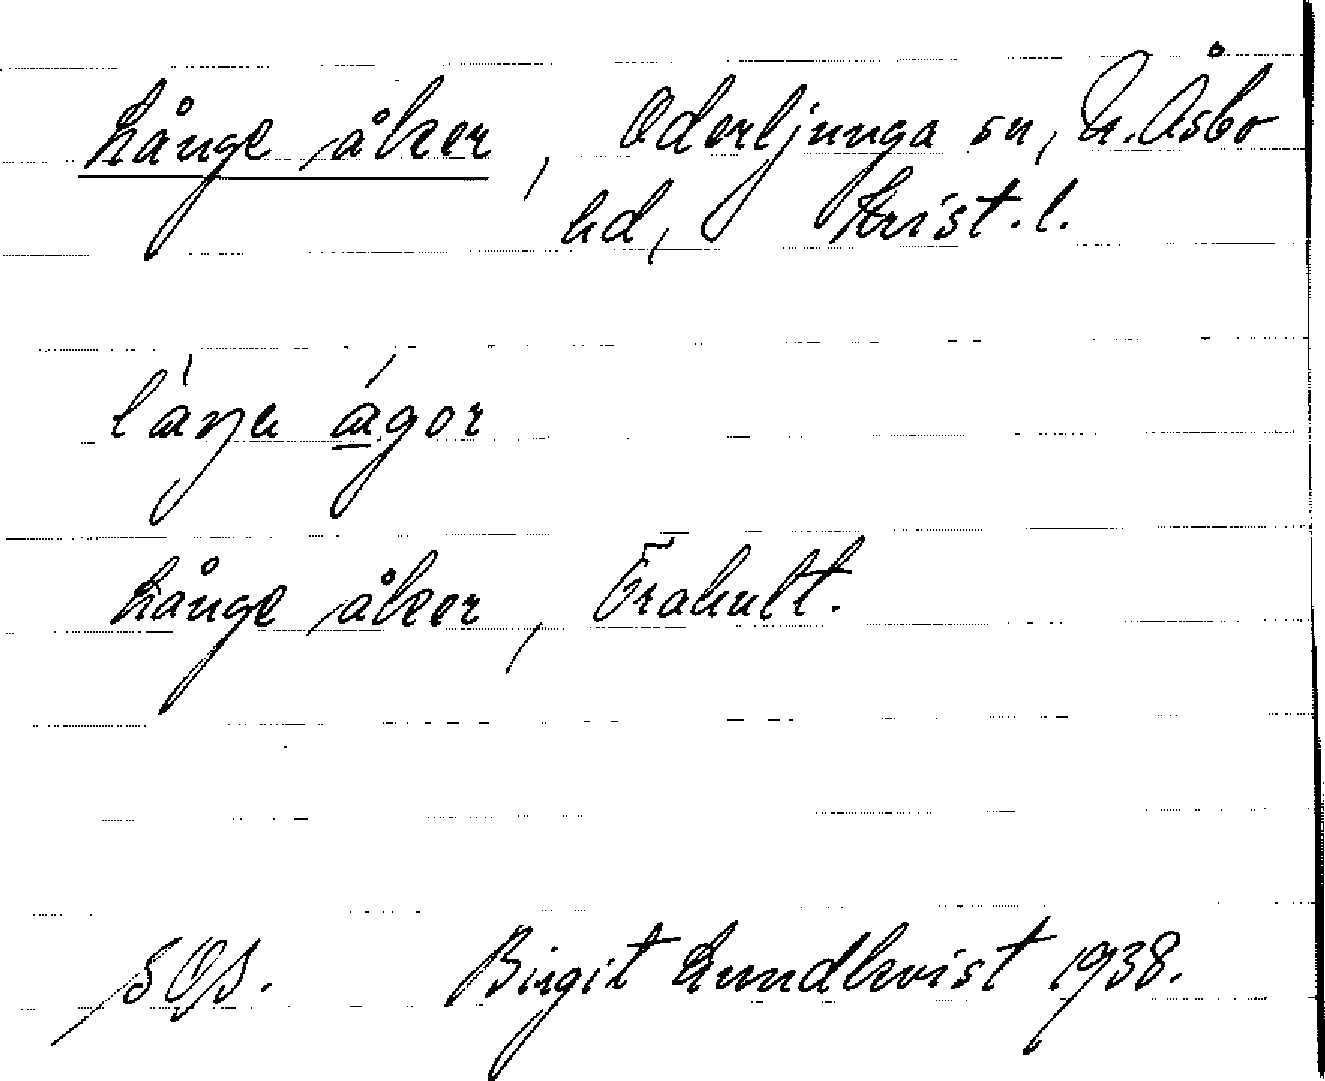 Långe åker, Oderljunga sn, N. Åsbo
hd, Krist. l.
Långe åker, Trahult.
SOS. Birgit Lundkvist 1938.